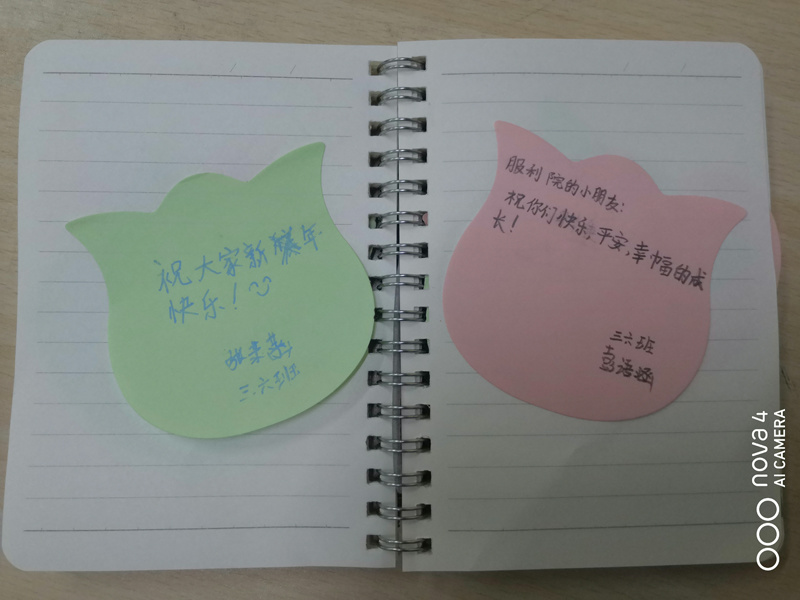 祝大家新年
快乐！
三.六班
服利院的小朋友：
祝你们快乐，平安，幸幅的成
长！
三六班
彭语涵
nova 4
AI CAMERA